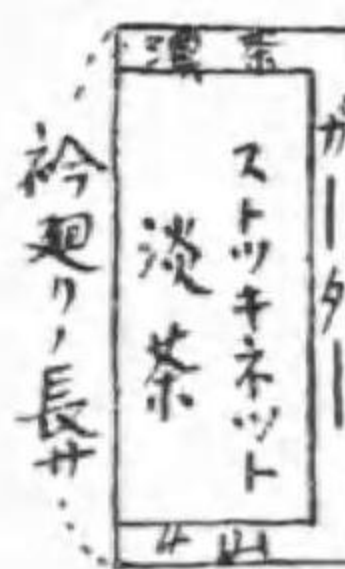 濃茶
ガーター
ストツキネツト
淡茶
衿廻リノ長サ
4山